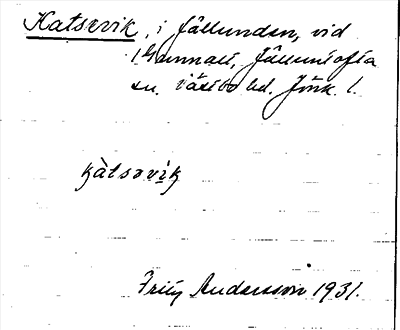 Katsevik, i Fällunden, vid
Gunnali, Fälluntofta
sn. Västbo hd. Jönk. l.
kàtsəvi̱k
Friz Andersson 1931.